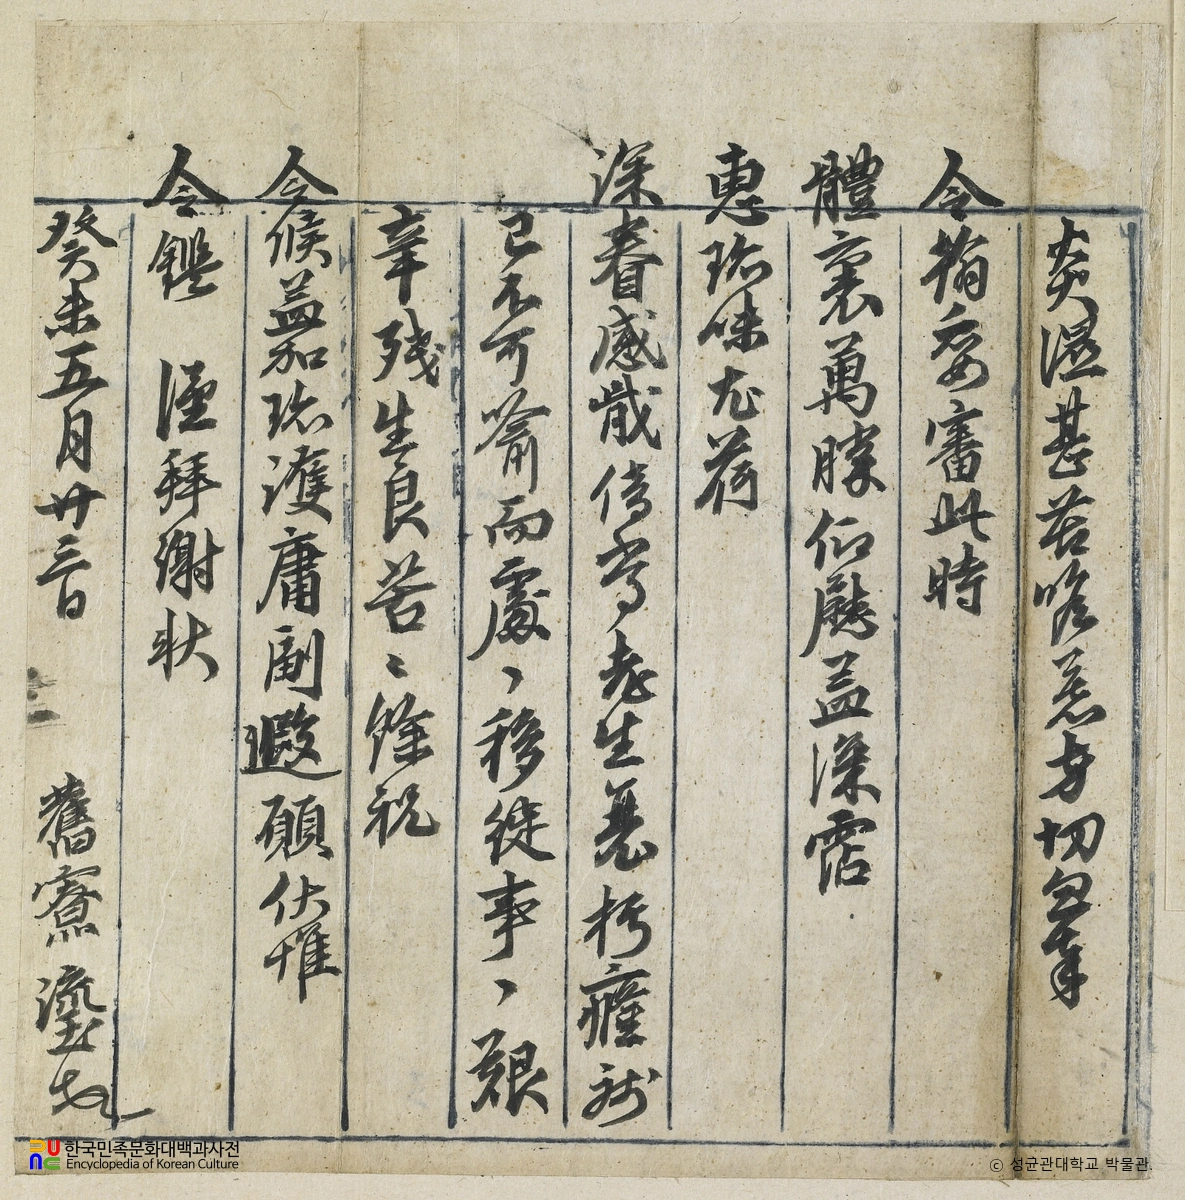 炎濕甚苦吟 方切忽奉
令翰委審此時
體裏萬勝仰慰益深霑
惠珍味尤荷
深眷感戢傳當老生 朽癃
已不可喻而處處移徙事事艱
辛殘生良苦苦餘祝
令候益加珍護庸副遐願伏惟
令鑑 謹拜謝狀
癸未五月廿三日 舊寮
한국민족문화대백과사전
Encyclopedia of Korean Culture
© 성균관대학교 박물관.